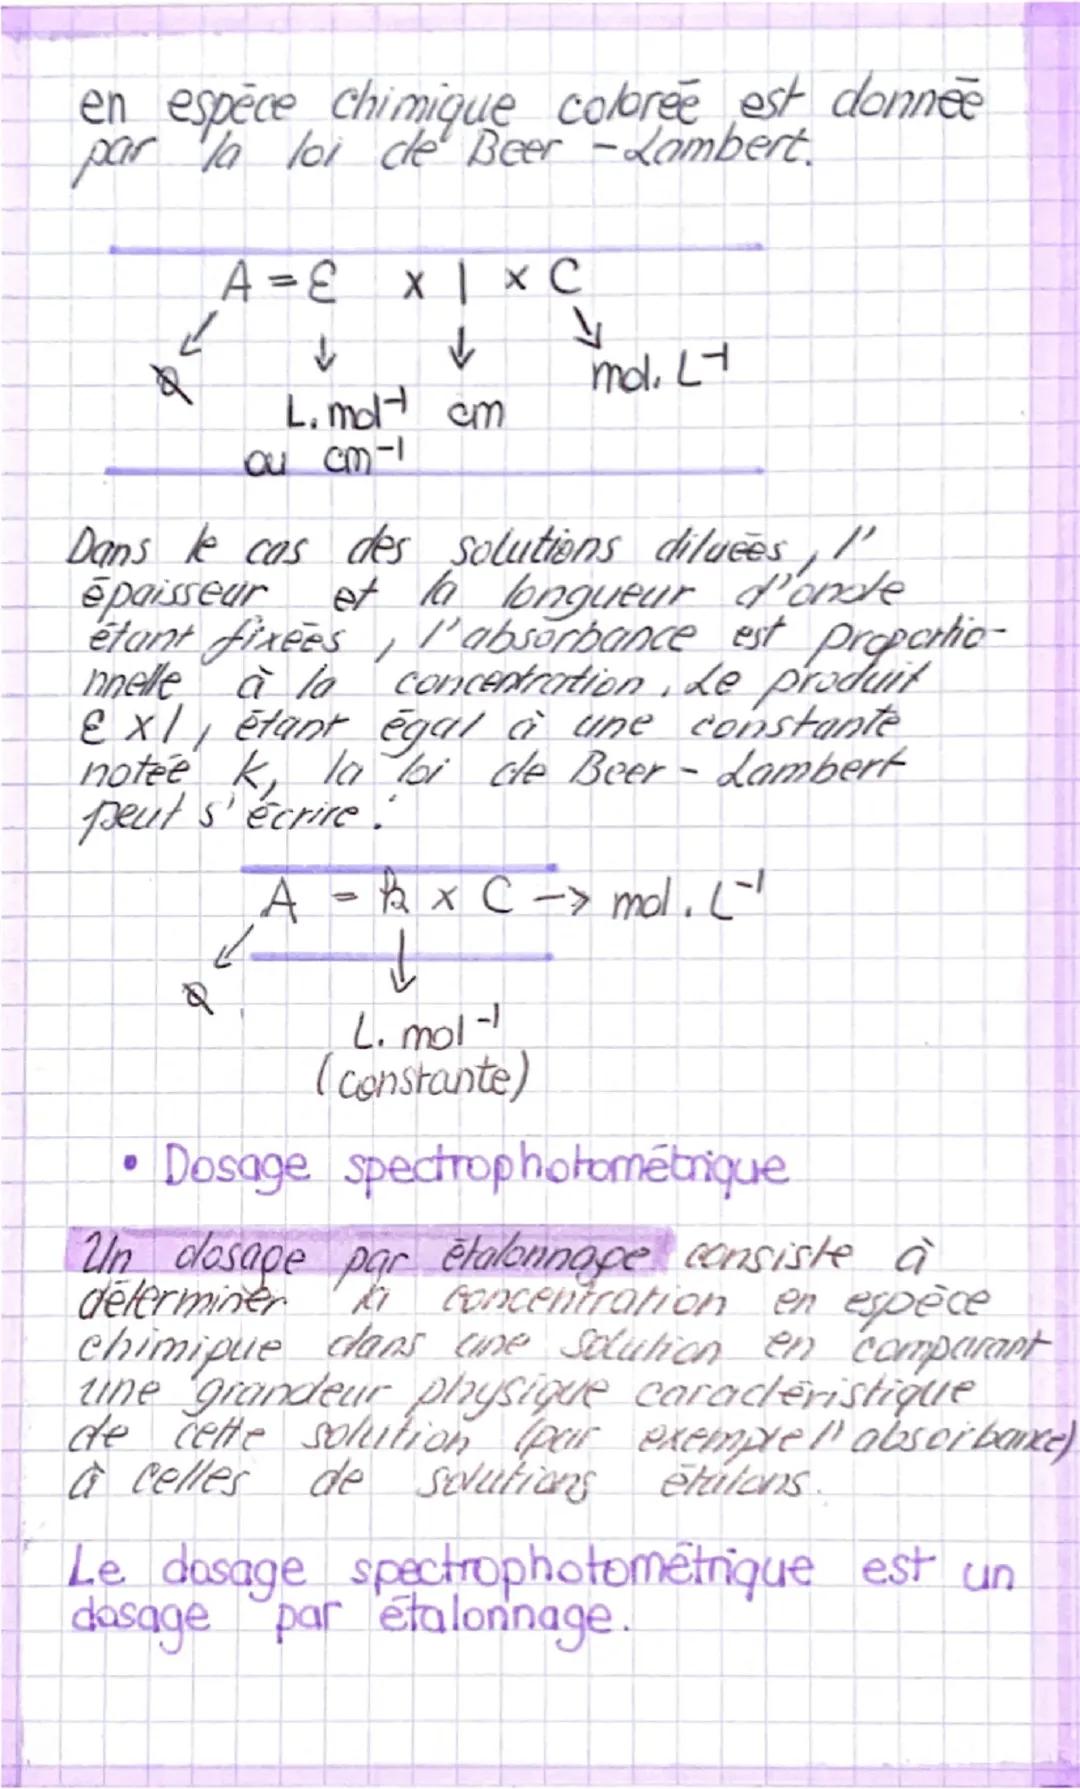 en espèce chimique colorée est donnée
par la loi de Beer - Lambert.
A = ε x l x C
Ø
L. mol⁻¹ cm mol. L⁻¹
ou cm⁻¹
Dans le cas des solutions diluées, l'
épaisseur et la longueur d'onde
étant fixées, l'absorbance est proportio-
nnelle à la concentration. Le produit
ε x l, étant égal à une constante
notée k, la loi de Beer - Lambert
peut s'écrire :
A = k x C -> mol. L⁻¹
Ø
L. mol⁻¹
(constante)
• Dosage spectrophotométrique
Un dosage par étalonnage consiste à
déterminer la concentration en espèce
chimique dans une solution en comparant
une grandeur physique caractéristique
de cette solution (par exemple l'absorbance)
à celles de solutions étalons.
Le dosage spectrophotométrique est un
dosage par étalonnage.